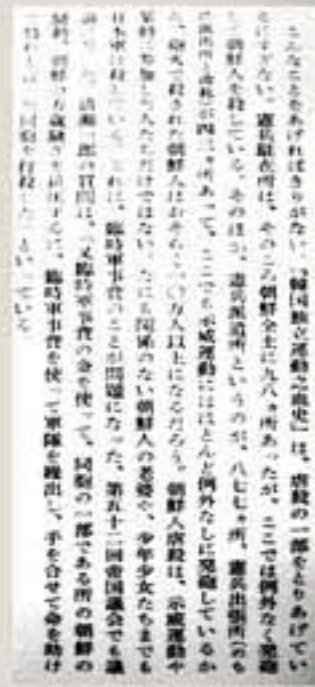 こんなことをあげればきりがない。『韓国独立運動之血史』は、虐殺の一部をとりあげてい
るにすぎない。憲兵駐在所は、そのころ朝鮮全土に九八ヵ所あったが、ここでは例外なく発砲
し朝鮮人を殺している。そのほか、憲兵派遣所というのが、八七七ヵ所、憲兵出張所(のち
に派出所と改称)が四三ヵ所あって、ここでも示威運動にほとんど例外なしに発砲しているか
ら、発砲で殺された朝鮮人はおそらく 万人以上になるだろう。朝鮮人虐殺は、示威運動や
集時に参加した人たちだけではない。なにも関係のない朝鮮人の老婆や、少年少女たちまでも
日本軍は殺している。これは、臨時軍事費のことが問題になった、第五十二回帝国議会でも議
一郎の質問は、「又臨時軍事費の金を使って、同胞の一部である所の朝鮮の
朝鮮の万歳騒ぎを鎮圧するに、臨時軍事費を使って軍隊を繰出し、手を合せて命を助け
同胞を 殺した」といっている。